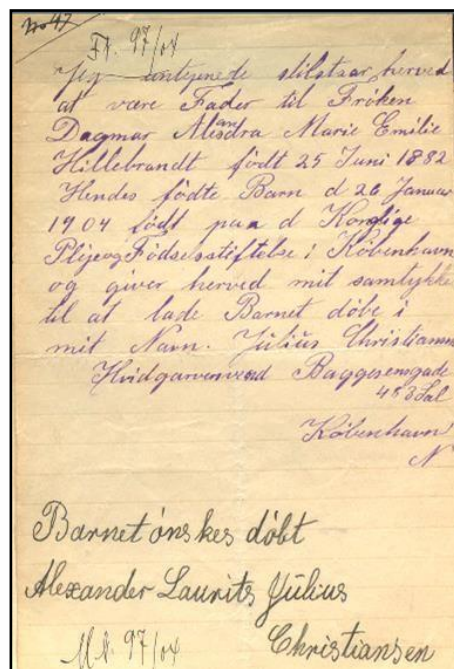 no 47
Fk. 97/04
Jeg untejnede tilstaar herved
at være Fader til Fröken
Dagmar Alesdra an Marie Emilie
Hillebrandt födt 25 Juni 1882
Hendes födte Barn d 26 Januar
1904 födt paa d Konglige
Pleje og Födselsstiftelse i Köbenhavn
og giver herved mit samtykke
til at lade Barnet döbe i
mit Navn. Julius Christiansen
Hvidgarversvend Baggesensgade
48 3 Sal
Köbenhavn
N
Barnet önskes döbt
Alexander Laurits Jülius
97/04
Christiansen